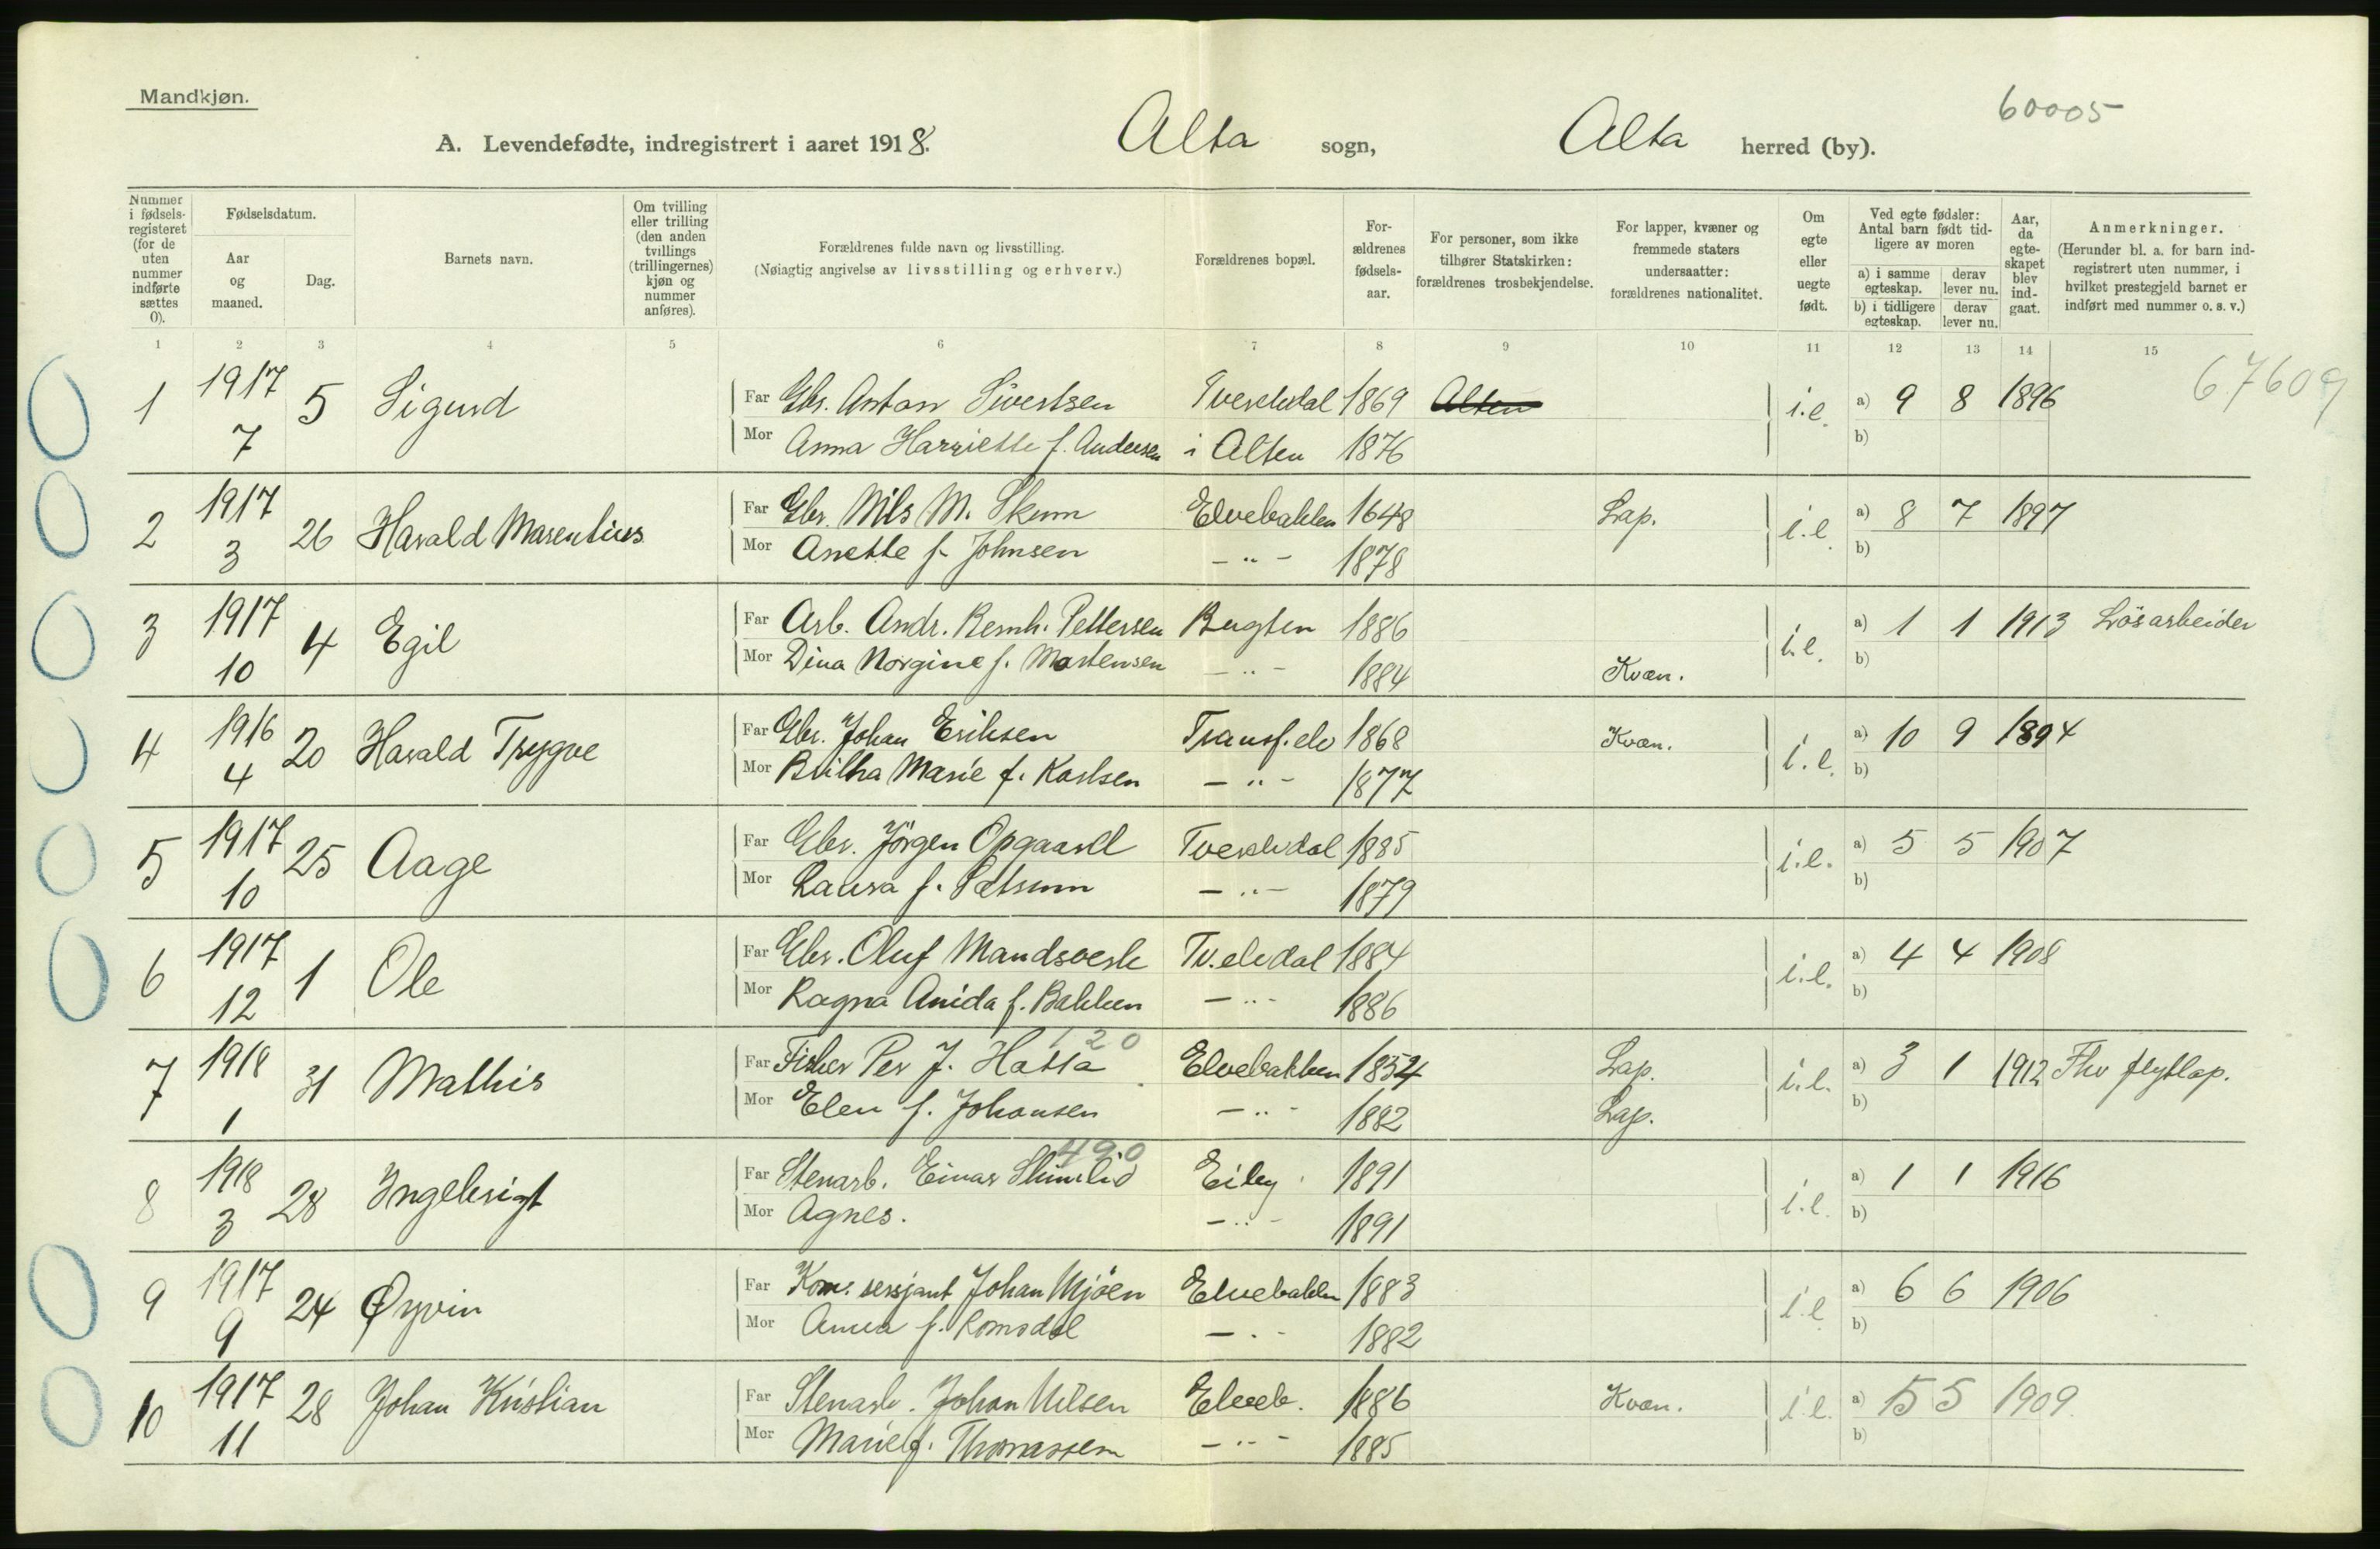 Mandkjøn.
60005
A. Levendefødte, indregistrert i aaret 1918. Alta sogn, Alta herred (by).
Nummer i fødsels-registeret (for de uten nummer indførte sættes 0).
Fødselsdatum.
Aar og maaned.
Dag.
Barnets navn.
Om tvilling eller trilling (den anden tvillings (trillingernes) kjøn og nummer anføres).
Forældrenes fulde navn og livsstilling.
(Nøiagtig angivelse av livsstilling og erhverv.)
Forældrenes bopæl.
For-ældrenes fødsels-aar.
For personer, som ikke tilhører Statskirken: forældrenes trosbekjendelse.
For lapper, kvæner og fremmede staters undersaatter: forældrenes nationalitet.
Om egte eller uegte født.
Ved egte fødsler: Antal barn født tid-ligere av moren
a) i samme egteskap. derav lever nu.
b) i tidligere egteskap. derav lever nu.
Aar, da egte-skapet blev ind-gaat.
Anmerkninger.
(Herunder bl. a. for barn ind-registrert uten nummer, i hvilket prestegjeld barnet er indført med nummer o. s. v.)
1 2 3 4 5 6 7 8 9 10 11 12 13 14 15
67609
1 1917 7 5 Sigurd Far Gbr. Anton Sivertsen Tverelvdal 1869 Alten i.e. a) 9 8 1896
Mor Anna Harriette f. Andersen i Alten 1876 b)
2 1917 3 26 Harald Marentius Far Gbr. Nils M. Skum Elvebakken 1648 Lap. i.e. a) 8 7 1897
Mor Anette f. Johnsen - " - 1878 b)
3 1917 10 4 Egil Far Arb. Andr. Bernh. Pettersen Bugten 1886 i.e. a) 1 1 1913 Lösarbeider
Mor Dina Norgine f. Mortensen - " - 1884 Kvæn. b)
4 1916 4 20 Harald Trygve Far Gbr. Johan Eriksen Transf.elv 1868 Kvæn. i.e. a) 10 9 1894
Mor Marie f. Karlsen - " - 1877 b)
5 1917 10 25 Aage Far Gbr. Jörgen Opgaard Tverelvdal 1885 i.e. a) 5 5 1907
Mor Laura f. - " - 1879 b)
6 1917 12 1 Ole Far Gbr. Oluf Mandsverk Tv.elvdal 1884 i.e. a) 4 4 1908
Mor Ragna Anida f. Bakken - " - 1886 b)
120
7 1918 1 31 Mathis Far Fisker Per J. Hatta Elvebakken 1854 Lap. i.e. a) 3 1 1912 Fhv flytlap.
Mor Elen f. Johansen - " - 1882 Lap. b)
490
8 1918 3 28 Ingebrigt Far Stenarb. Einar Eiby 1891 i.e. a) 1 1 1916
Mor Agnes. - " - 1891 b)
9 1917 9 24 Øyvin Far Kom. sersjant Johan Mjöen Elvebakken 1883 i.e a) 6 6 1906
Mor Anna f. Romsdal - " - 1882 b)
10 1917 11 28 Johan Kristian Far Stenarb. Johan Nilsen Elveb. 1886 Kvæn. i.e. a) 5 5 1909.
Mor Marie f. Thomassen - " - 1885 b)